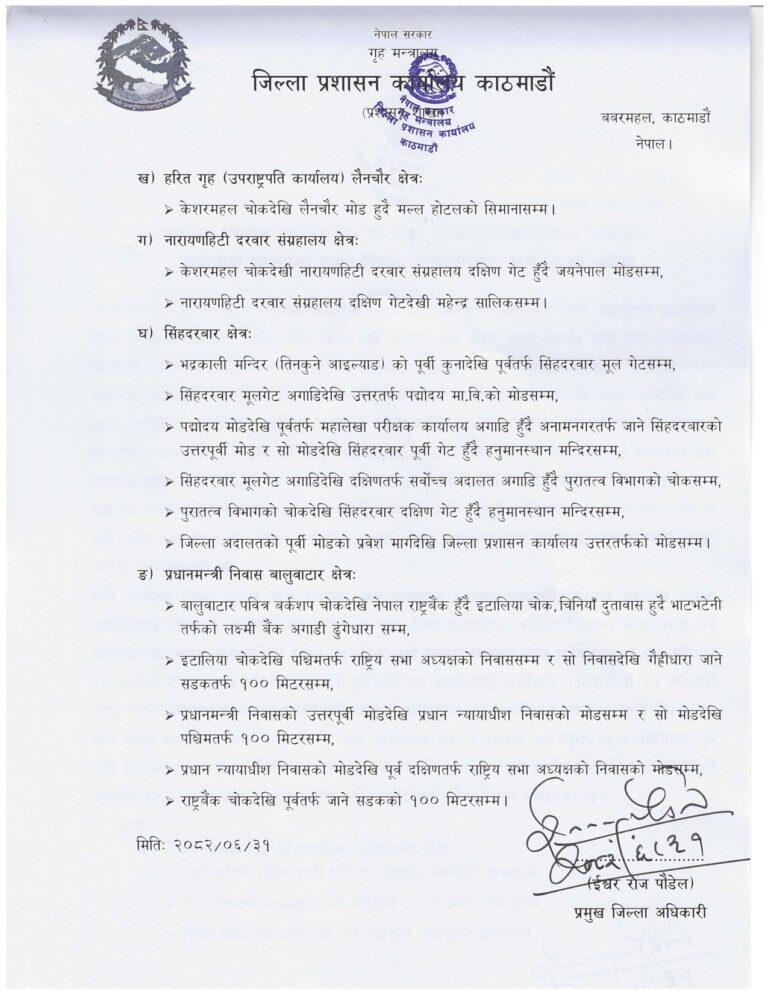 नेपाल सरकार
गृह मन्त्रालय
जिल्ला प्रशासन कार्यालय काठमाडौं
(प्रशासन शाखा)
नेपाल सरकार
गृह मन्त्रालय
जिल्ला प्रशासन कार्यालय
काठमाडौं
बबरमहल, काठमाडौं
नेपाल।
ख) हरित गृह (उपराष्ट्रपति कार्यालय) लैनचौर क्षेत्रः
➢ केशरमहल चोकदेखि लैनचौर मोड हुदै मल्ल होटलको सिमानासम्म।
ग) नारायणहिटी दरवार संग्रहालय क्षेत्रः
➢ केशरमहल चोकदेखी नारायणहिटी दरवार संग्रहालय दक्षिण गेट हुँदै जयनेपाल मोडसम्म,
➢ नारायणहिटी दरवार संग्रहालय दक्षिण गेटदेखी महेन्द्र सालिकसम्म।
घ) सिंहदरबार क्षेत्रः
➢ भद्रकाली मन्दिर (तिनकुने आइल्याड) को पूर्वी कुनादेखि पूर्वतर्फ सिंहदरबार मूल गेटसम्म,
➢ सिंहदरबार मूलगेट अगाडिदेखि उत्तरतर्फ पद्मोदय मा.बि.को मोडसम्म,
➢ पद्मोदय मोडदेखि पूर्वतर्फ महालेखा परीक्षक कार्यालय अगाडि हुँदै अनामनगरतर्फ जाने सिंहदरबारको
उत्तरपूर्वी मोड र सो मोडदेखि सिंहदरबार पूर्वी गेट हुँदै हनुमानस्थान मन्दिरसम्म,
➢ सिंहदरबार मूलगेट अगाडिदेखि दक्षिणतर्फ सर्वोच्च अदालत अगाडि हुँदै पुरातत्व विभागको चोकसम्म,
➢ पुरातत्व विभागको चोकदेखि सिंहदरबार दक्षिण गेट हुँदै हनुमानस्थान मन्दिरसम्म,
➢ जिल्ला अदालतको पूर्वी मोडको प्रवेश मार्गदेखि जिल्ला प्रशासन कार्यालय उत्तरतर्फको मोडसम्म।
ङ) प्रधानमन्त्री निवास बालुवाटार क्षेत्रः
➢ बालुवाटार पवित्र बर्कशप चोकदेखि नेपाल राष्ट्रबैंक हुँदै इटालिया चोक,चिनियाँ दुतावास हुदै भाटभटेनी
तर्फको लक्ष्मी बैंक अगाडी ढुंगेधारा सम्म,
➢ इटालिया चोकदेखि पश्चिमतर्फ राष्ट्रिय सभा अध्यक्षको निवाससम्म र सो निवासदेखि गैह्रीधारा जाने
सडकतर्फ १०० मिटरसम्म,
➢ प्रधानमन्त्री निवासको उत्तरपूर्वी मोडदेखि प्रधान न्यायाधीश निवासको मोडसम्म र सो मोडदेखि
पश्चिमतर्फ १०० मिटरसम्म,
➢ प्रधान न्यायाधीश निवासको मोडदेखि पूर्व दक्षिणतर्फ राष्ट्रिय सभा अध्यक्षको निवासको मोडसम्म,
➢ राष्ट्रबैंक चोकदेखि पूर्वतर्फ जाने सडकको १०० मिटरसम्म।
मितिः २०८२/०६/३१
(ईश्वर राज पौडेल)
प्रमुख जिल्ला अधिकारी